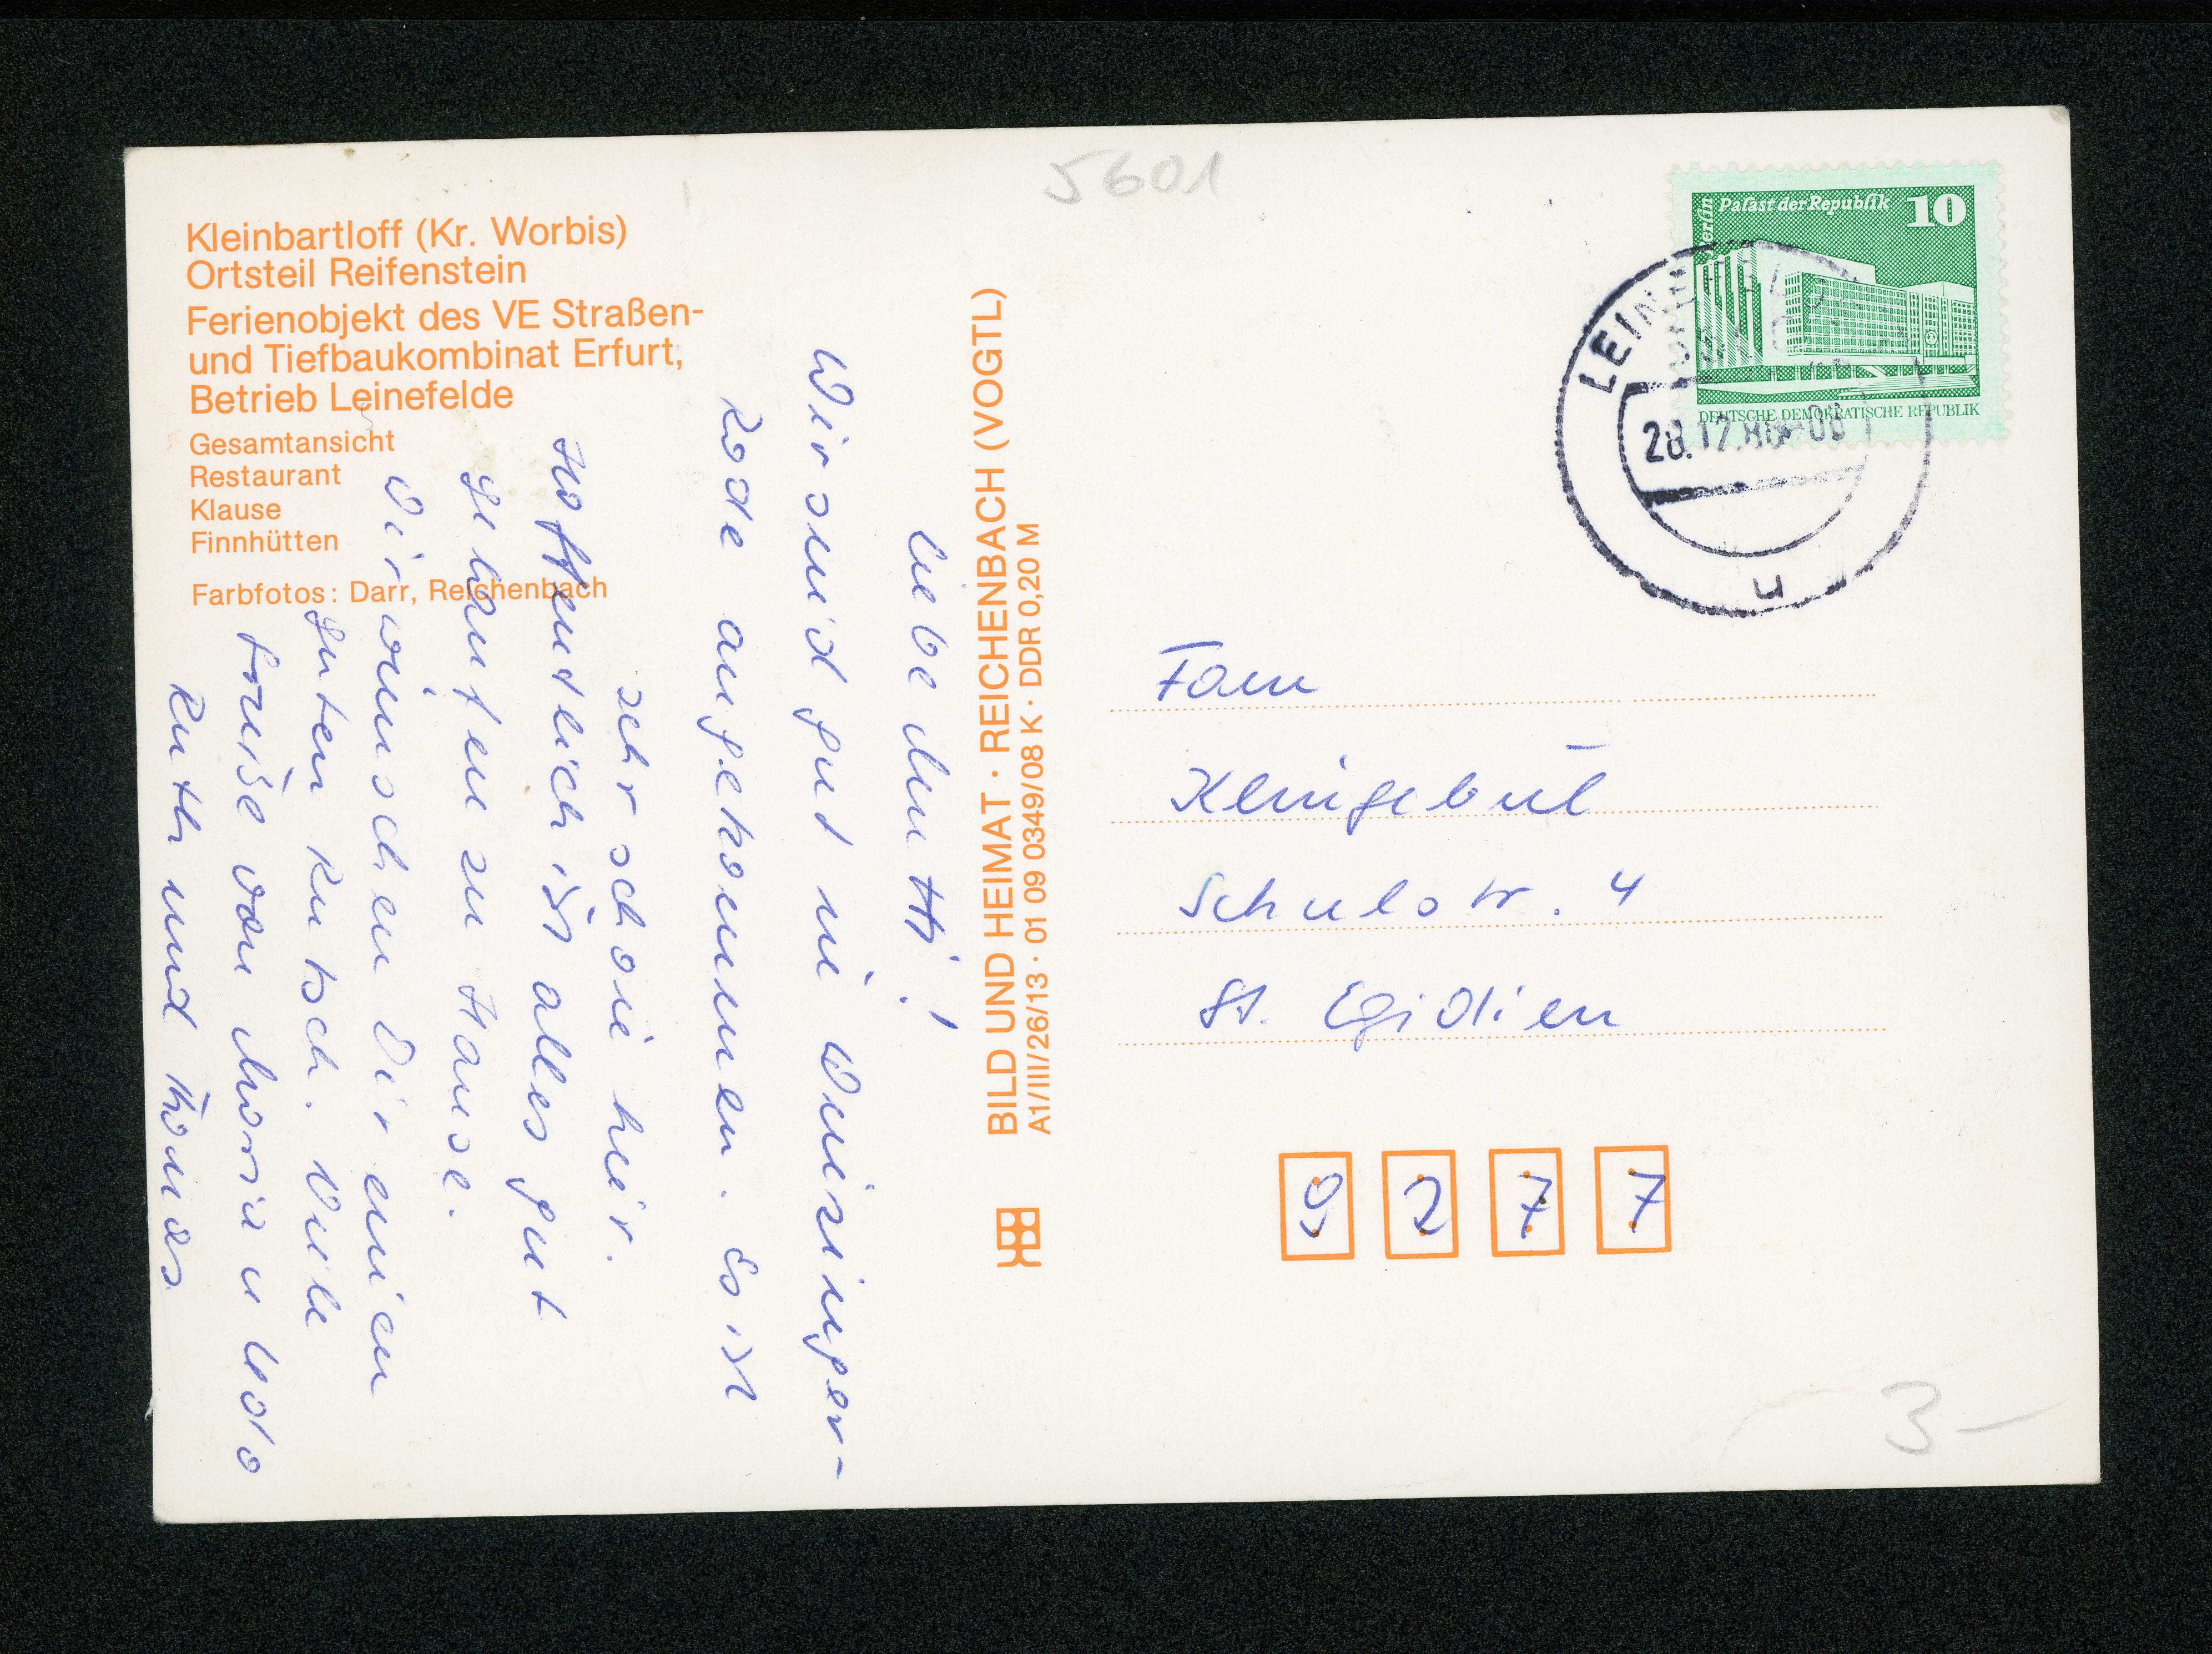 5601
Kleinbartloff (Kr. Worbis)
Ortsteil Reifenstein
Ferienobjekt des VE Straßen-
und Tiefbaukombinat Erfurt,
Betrieb Leinefelde
Gesamtansicht
Restaurant
Klause
Finnhütten
Farbfotos: Darr, Reichenbach
Liebe Mutti!
Wir sind gut in Wintzinger-
rode angekommen. Es ist
sehr schön hier.
Hoffentlich ist alles gut
gelaufen zu Hause.
Wir wünschen Dir einen
guten Rutsch. Viele
Grüße von Maria u Udo
Ruth und Thomas
BILD UND HEIMAT · REICHENBACH (VOGTL)
A1/III/26/13 · 01 09 0349/08 K · DDR 0,20 M
Berlin
Palast der Republik
10
DEUTSCHE DEMOKRATISCHE REPUBLIK
28.12.
u
Fam
Klingebiel
Schulstr. 4
St. Egidien
9277
3-